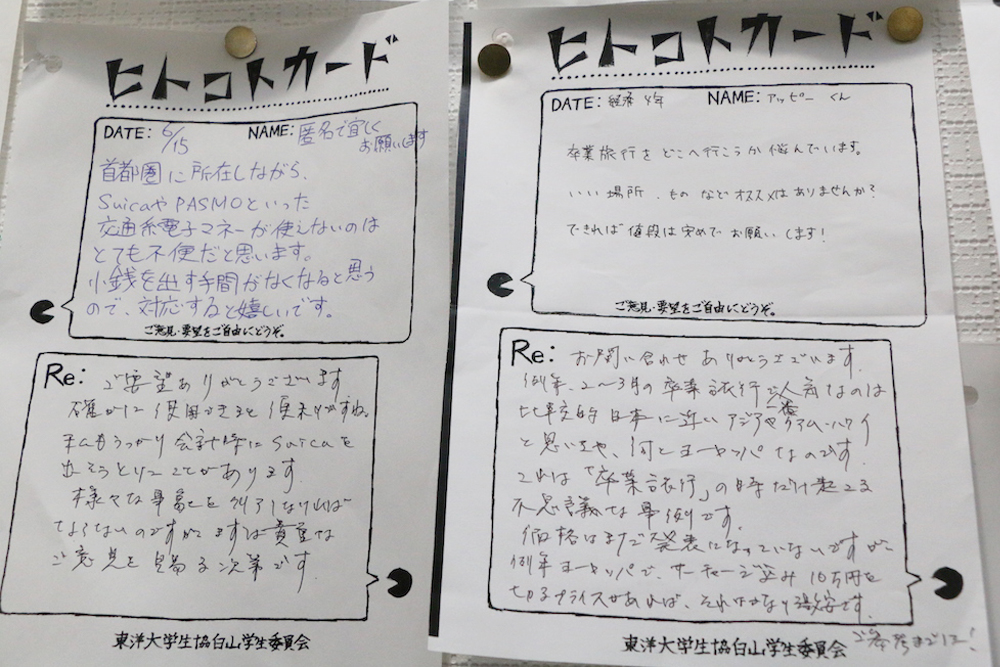 ヒトコトカード
DATE: 6/15 NAME: 匿名で宜しく
お願いします
首都圏に所在しながら、
SuicaやPASMOといった
交通系電子マネーが使えないのは
とても不便だと思います。
小銭を出す手間がなくなると思う
ので、対応すると嬉しいです。
ご意見・要望をご自由にどうぞ。
Re: ご要望ありがとうございます
確かに使用できると便利ですね。
私もうっかり会計時にSuicaを
出そうとしたことがあります。
様々な事をしなければ
ならないのですがまずは貴重な
ご意見を賜る次第です。
東洋大学生協白山学生委員会
ヒトコトカード
DATE: 経済4年 NAME: アッピー くん
卒業旅行をどこへ行こうか悩んでいます。
いい場所、ものなどオススメはありませんか?
できれば値段は安めでお願いします!
ご意見・要望をご自由にどうぞ。
Re: お問い合わせありがとうございます。
例年、2〜3月の卒業旅行で一番人気なのは
比較的日本に近いアジアやグアム・ハワイ
と思いきや、何とヨーロッパなのです。
これは「卒業旅行」の時だけ起こる
不思議な事例です。
価格はまだ発表になっていないですが
例年ヨーロッパで、サーチャージ込み10万円を
切るプライスがあれば、それはかなり格安です。
ご参考までに!
東洋大学生協白山学生委員会